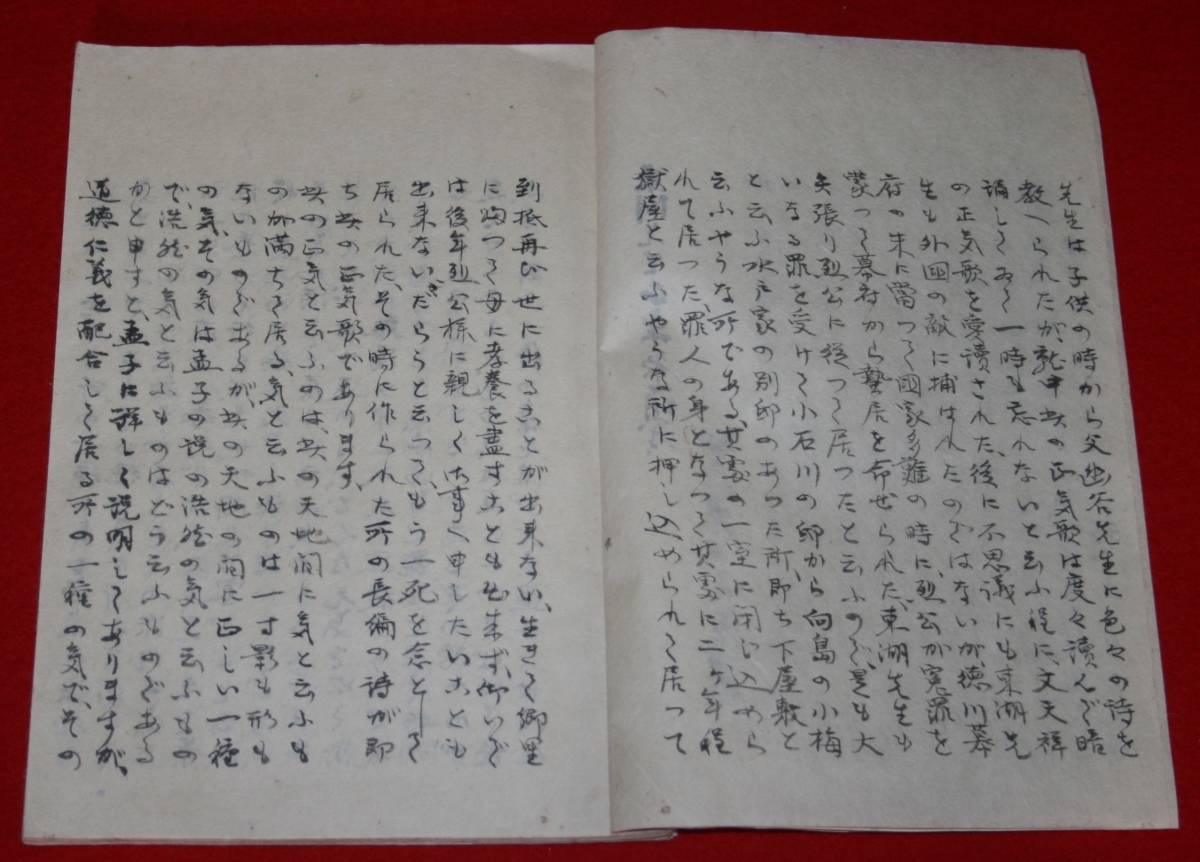 先生は子供の時から父幽谷先生に色々の詩を
教へられたが、就中此の正気歌は度々讀んで暗
誦してゐて一時も忘れないと云ふ程に、文天祥
の正気歌を愛讀された、後に不思議にも東湖先
生も外國の敵に捕はれたのではないが、徳川幕
府の末に當つて國家多難の時に、烈公が寃罪を
蒙つて幕府から蟄居を命ぜられた、東湖先生も
矢張り烈公に従つて居つたと云ふので、是も大
いなる罪を受けて小石川の邸から向島の小梅
と云ふ水戸家の別邸のあつた所、即ち下屋敷と
云ふやうな所である、其處の一室に閉じ込めら
れて居つた、罪人の身となつて其處に二ヶ年程
獄屋と云ふやうな所に押し込められて居って
到抵再び世に出ることが出来ない、生きて郷里
に帰つて母に孝養を盡すことも出来ず、仰いで
は後年烈公様に親しく御事へ申したいことも
出来ないだらうと云つて、もう一死を念として
居られた、その時に作られた所の長編の詩が即
ち此の正気歌であります、
此の正気と云ふのは、此の天地間に気と云ふも
のが満ちて居る、気と云ふものは一寸影も形も
ないものであるが、此の天地の間に正しい一種
の気、その気は孟子の説の浩然の気と云ふもの
で、浩然の気と云ふものはどう云ふものである
かと申すと、孟子に詳しく説明してありますが、
道徳仁義を配合して居る所の一種の気で、その